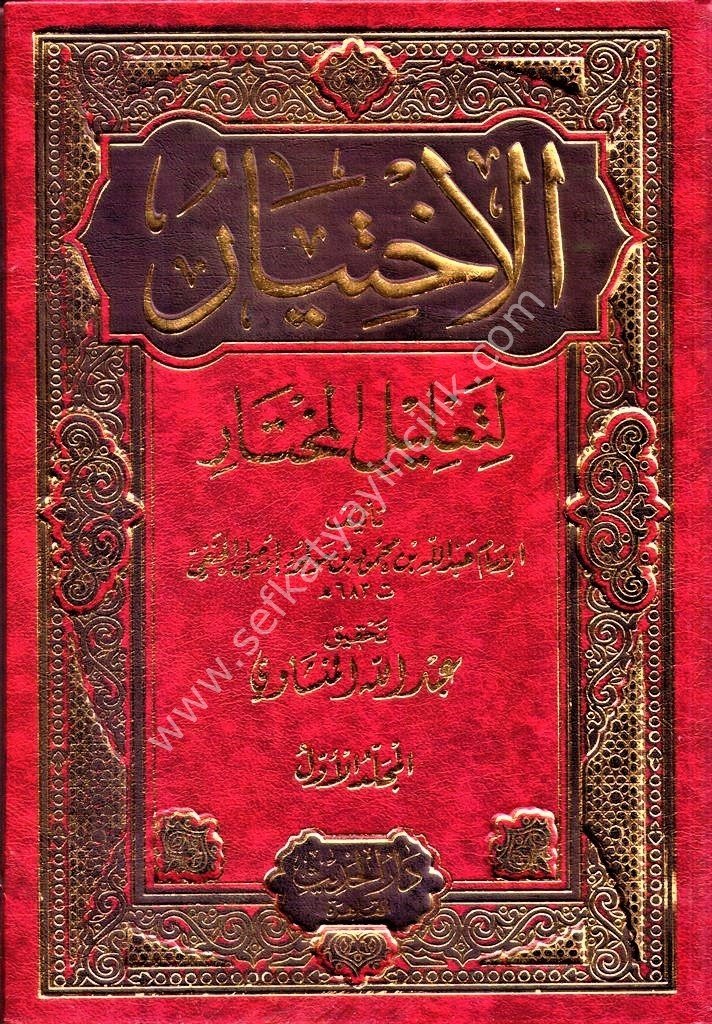 الاِخْتِيَارُ
لِتَعْلِيْلِ المُخْتَارِ
تأليف
الإمام عبد الله بن محمود بن الموصلي الحنفي
ت ٦٨٣ هـ
تحقيق
عبد الله المنشاوي
المجلد الأول
دار الحديث
القاهرة
www.sefkatyayincilik.com